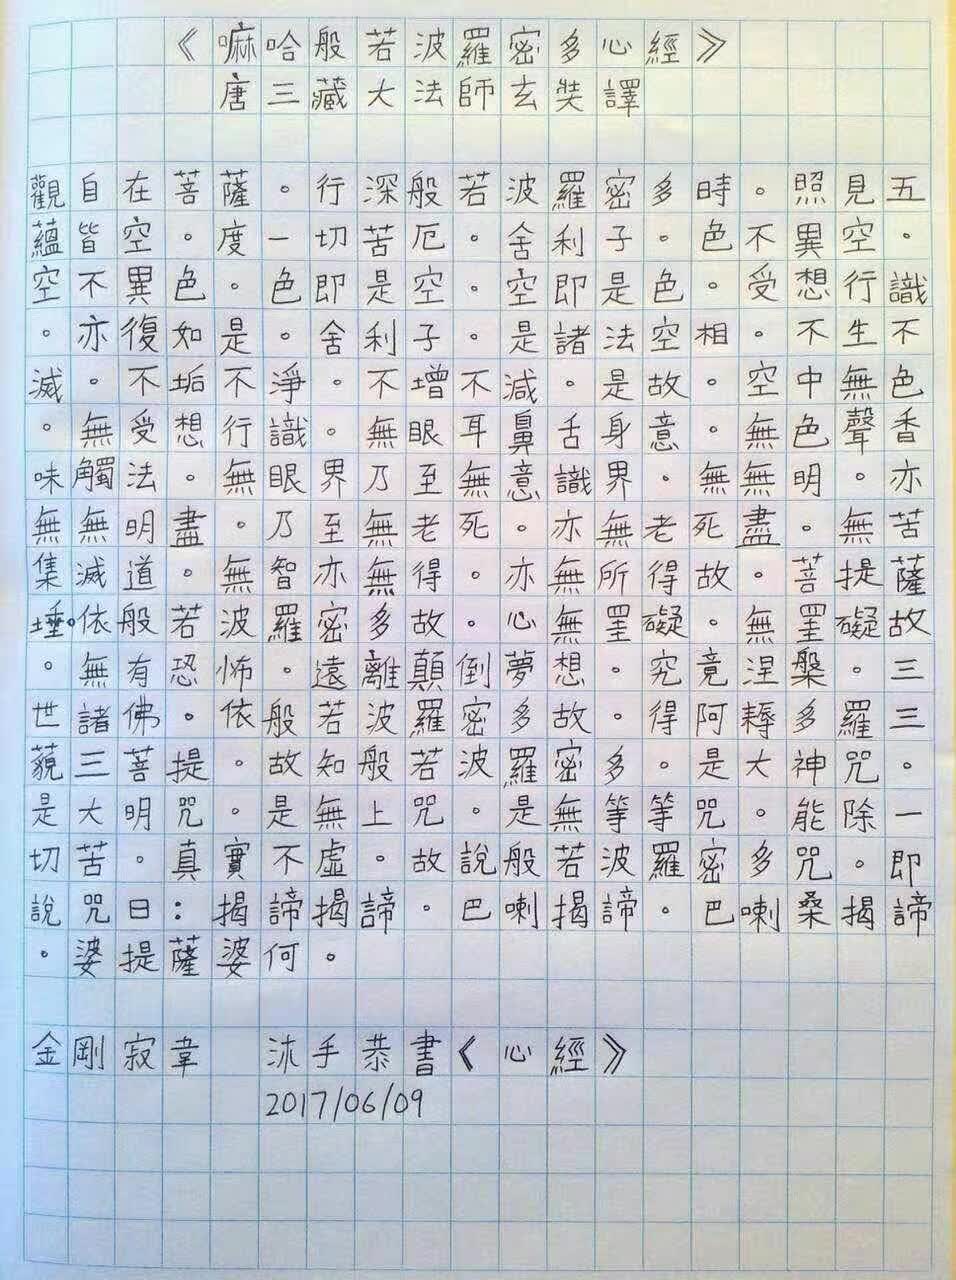 《嘛哈般若波羅密多心經》
唐三藏大法師玄奘譯
觀自在菩薩。行深般若波羅密多時。照見五
蘊皆空。度一切苦厄。舍利子。色不異空。
空不異色。色即是空。空即是色。受想行識
。亦復如是。舍利子。是諸法空相。不生不
滅。不垢不淨。不增不減。是故。空中無色
。無受想行識。無眼耳鼻舌身意。無色聲香
味觸法。無眼界乃至無意識界。無無明。亦
無無明盡。乃至無老死。亦無老死盡。無苦
集滅道。無智亦無得。亦無所得故。菩提薩
埵。依般若波羅密多故。心無罣礙。無罣礙故
。無有恐怖。遠離顛倒夢想。究竟涅槃。三
世諸佛。依般若波羅密多故。得阿耨多羅三
藐三菩提。故知般若波羅密多。是大神咒。
是大明咒。是無上咒。是無等等咒。能除一
切苦。真實不虛。故說般若波羅密多咒。即
說咒曰：揭諦揭諦。巴喇揭諦。巴喇桑揭諦
。婆提薩婆何。
金剛寂韋 沐手恭書《心經》
2017/06/09